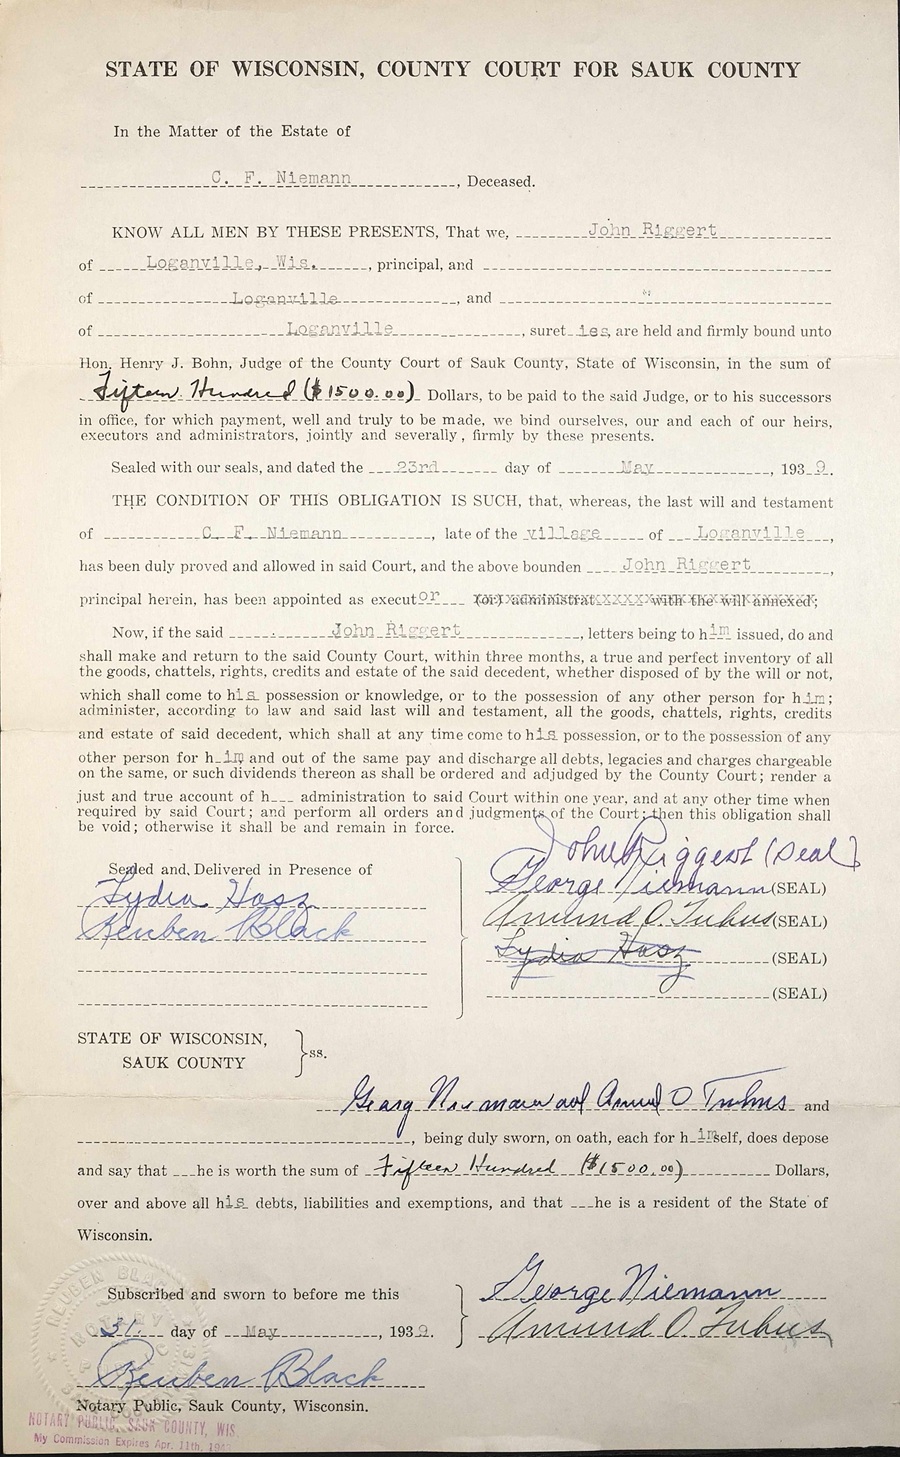 STATE OF WISCONSIN, COUNTY COURT FOR SAUK COUNTY
In the Matter of the Estate of
C. F. Niemann, Deceased.
KNOW ALL MEN BY THESE PRESENTS, That we, John Riggert
of Loganville, Wis., principal, and
of Loganville, and
of Loganville, sureties, are held and firmly bound unto
Hon. Henry J. Bohn, Judge of the County Court of Sauk County, State of Wisconsin, in the sum of
Fifteen Hundred ($1500.00) Dollars, to be paid to the said Judge, or to his successors
in office, for which payment, well and truly to be made, we bind ourselves, our and each of our heirs,
executors and administrators, jointly and severally, firmly by these presents.
Sealed with our seals, and dated the 23rd day of May, 1939.
THE CONDITION OF THIS OBLIGATION IS SUCH, that, whereas, the last will and testament
of C. F. Niemann, late of the village of Loganville,
has been duly proved and allowed in said Court, and the above bounden John Riggert,
principal herein, has been appointed as executor (or) administrat with the will annexed;
Now, if the said John Riggert, letters being to him issued, do and
shall make and return to the said County Court, within three months, a true and perfect inventory of all
the goods, chattels, rights, credits and estate of the said decedent, whether disposed of by the will or not,
which shall come to his possession or knowledge, or to the possession of any other person for him;
administer, according to law and said last will and testament, all the goods, chattels, rights, credits
and estate of said decedent, which shall at any time come to his possession, or to the possession of any
other person for him and out of the same pay and discharge all debts, legacies and charges chargeable
on the same, or such dividends thereon as shall be ordered and adjudged by the County Court; render a
just and true account of h___ administration to said Court within one year, and at any other time when
required by said Court; and perform all orders and judgments of the Court; then this obligation shall
be void; otherwise it shall be and remain in force.
John Riggert (Seal)
Sealed and Delivered in Presence of
George Niemann (SEAL)
Lydia Hasz
Amund O. Tuhus (SEAL)
Reuben Black
Lydia Hasz (SEAL)
(SEAL)
STATE OF WISCONSIN,
SAUK COUNTY } ss.
Georg Niemann and Amund O Tuhus and
, being duly sworn, on oath, each for himself, does depose
and say that ___he is worth the sum of Fifteen Hundred ($1500.00) Dollars,
over and above all his debts, liabilities and exemptions, and that ___he is a resident of the State of
Wisconsin.
Subscribed and sworn to before me this
George Niemann
31. day of May, 1939.
Amund O. Tuhus
Reuben Black
Notary Public, Sauk County, Wisconsin.
NOTARY PUBLIC, SAUK COUNTY, WIS.
My Commission Expires Apr. 11th,
REUBEN BLACK
NOTARY